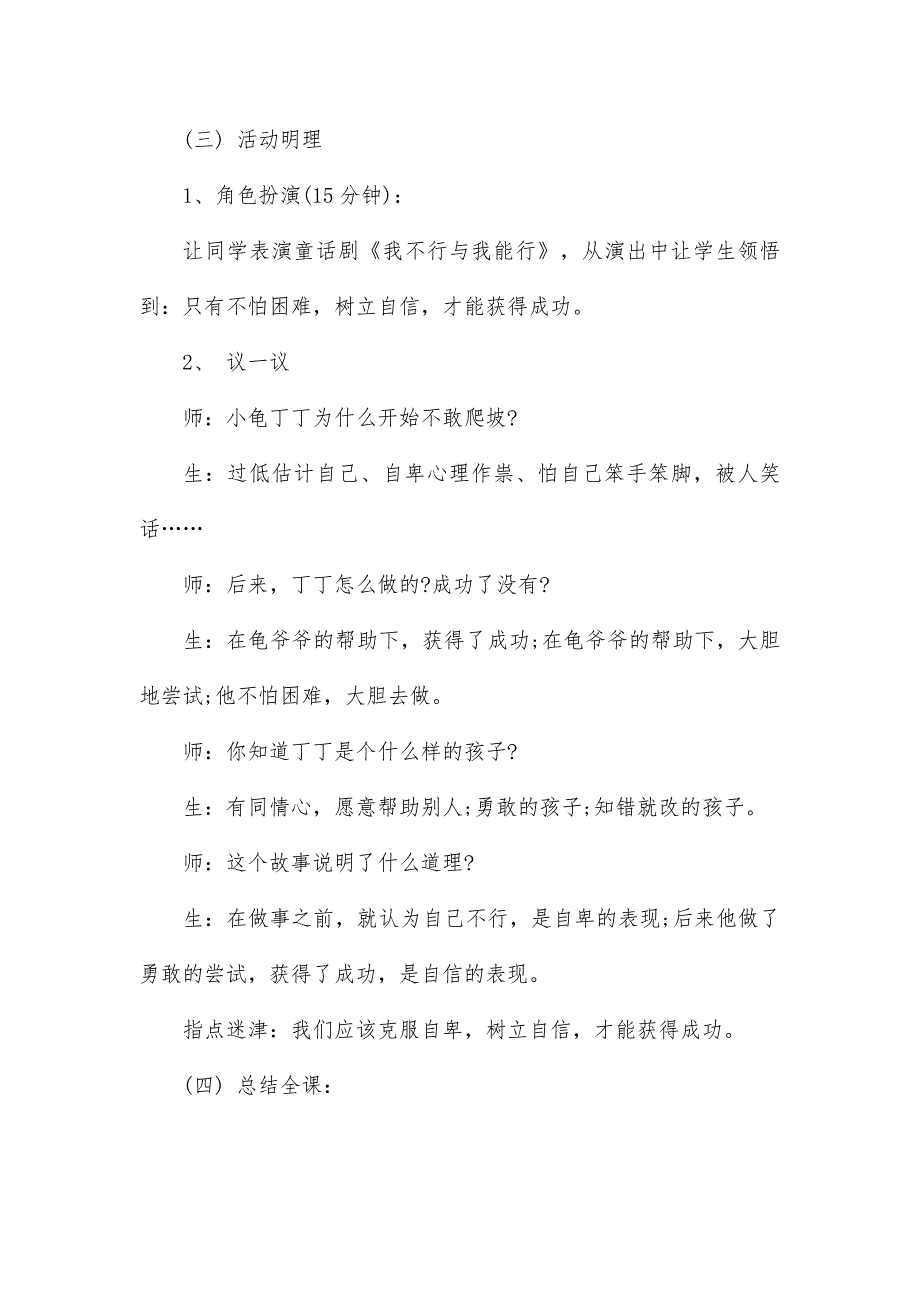 (三) 活动明理
1、角色扮演(15 分钟)：
让同学表演童话剧《我不行与我能行》，从演出中让学生领悟
到：只有不怕困难，树立自信，才能获得成功。
2、 议一议
师：小龟丁丁为什么开始不敢爬坡?
生：过低估计自己、自卑心理作祟、怕自己笨手笨脚，被人笑
话……
师：后来，丁丁怎么做的?成功了没有?
生：在龟爷爷的帮助下，获得了成功;在龟爷爷的帮助下，大胆
地尝试;他不怕困难，大胆去做。
师：你知道丁丁是个什么样的孩子?
生：有同情心，愿意帮助别人;勇敢的孩子;知错就改的孩子。
师：这个故事说明了什么道理?
生：在做事之前，就认为自己不行，是自卑的表现;后来他做了
勇敢的尝试，获得了成功，是自信的表现。
指点迷津：我们应该克服自卑，树立自信，才能获得成功。
(四) 总结全课：